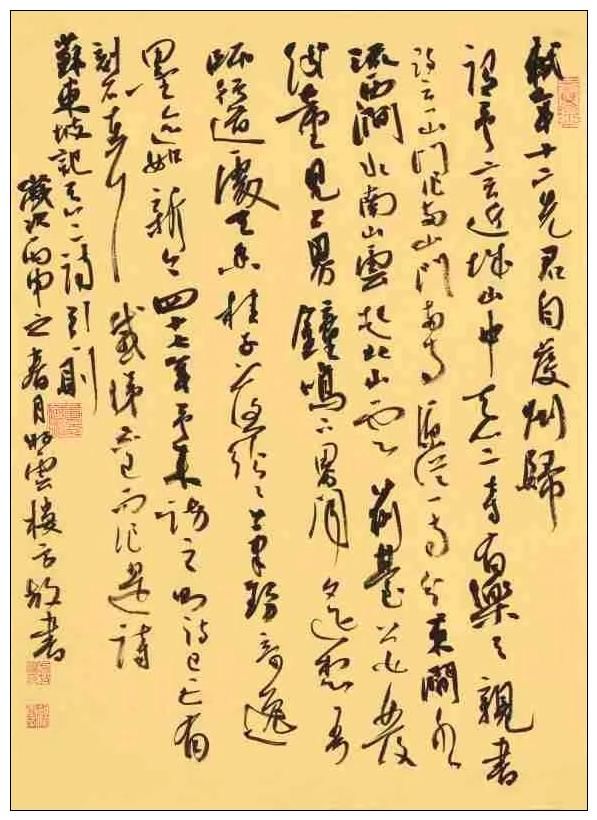 軾年十二先君自虔州歸
謂予言近城山中天竺寺有樂天親書
詩云一山門作兩山門兩寺原從一寺分東澗水
流西澗水南山雲起北山雲前臺花發
後臺見上界鐘鳴下界聞遙想吾
師行道處天香桂子落紛紛筆勢奇逸
墨迹如新今四十七年予來訪之則詩已亡有
刻石在耳感涕不已而作是詩
蘇東坡記天竺詩引一則
歲次丙申之春月雲樓方書